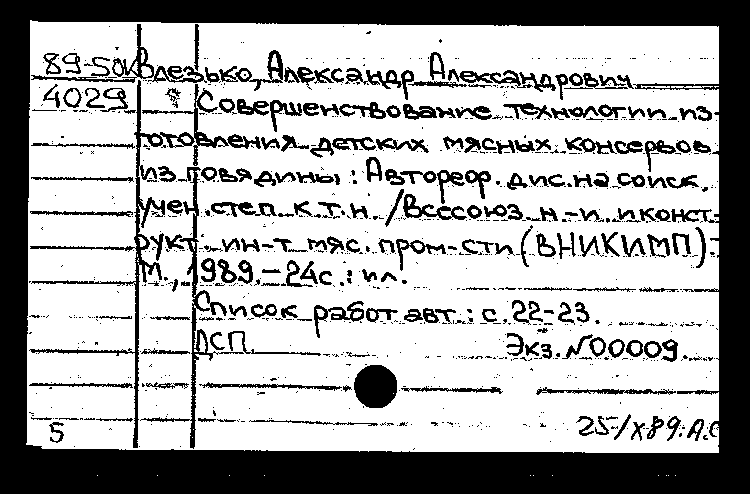 89-50к Влезько, Александр Александрович
4029 Совершенствование технологии из-
готовления детских мясных консервов
из говядины : Автореф. дис. на соиск.
учен. степ. к.т.н. /Всесоюз. н.-и. и конст-
рукт. ин-т мяс. пром-сти (ВНИКИМП).-
М., 1989.-24с.: ил.
Список работ авт.: с.22-23.
ДСП. Экз. №00009.
25/X89.А.С
5